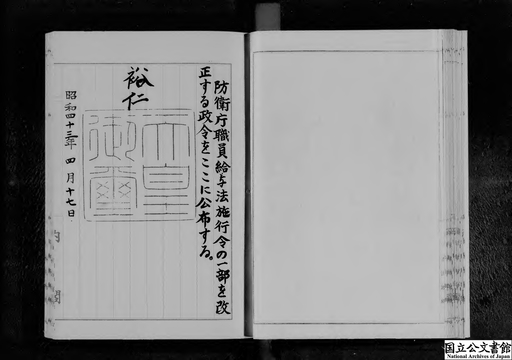 防衛庁職員給与法施行令の一部を改
正する政令をここに公布する。
裕仁
天皇
御璽
昭和四十三年四月十七日
内閣
国立公文書館
National Archives of Japan